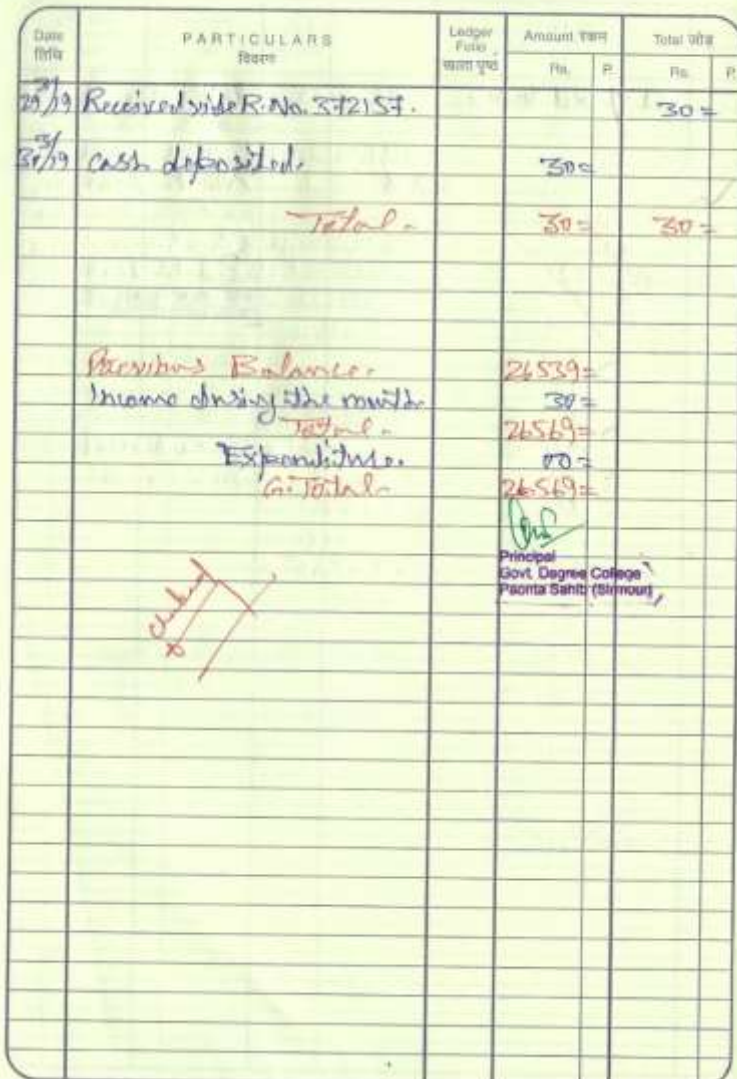 Date PARTICULARS Ledger Folio Amount रकम Total जोड़
तिथि विवरण खाता पृष्ठ Rs. P. Rs. P.
29/3/19 Received vide R.No. 372157. 30=
30/3/19 Cash deposited. 30=
Total. 30= 30=
Previous Balance. 26539=
Income during the month 30=
Total. 26569=
Expenditure. 00=
G. Total. 26569=
Principal
Govt. Degree College
Paonta Sahib (Sirmour)
Checked